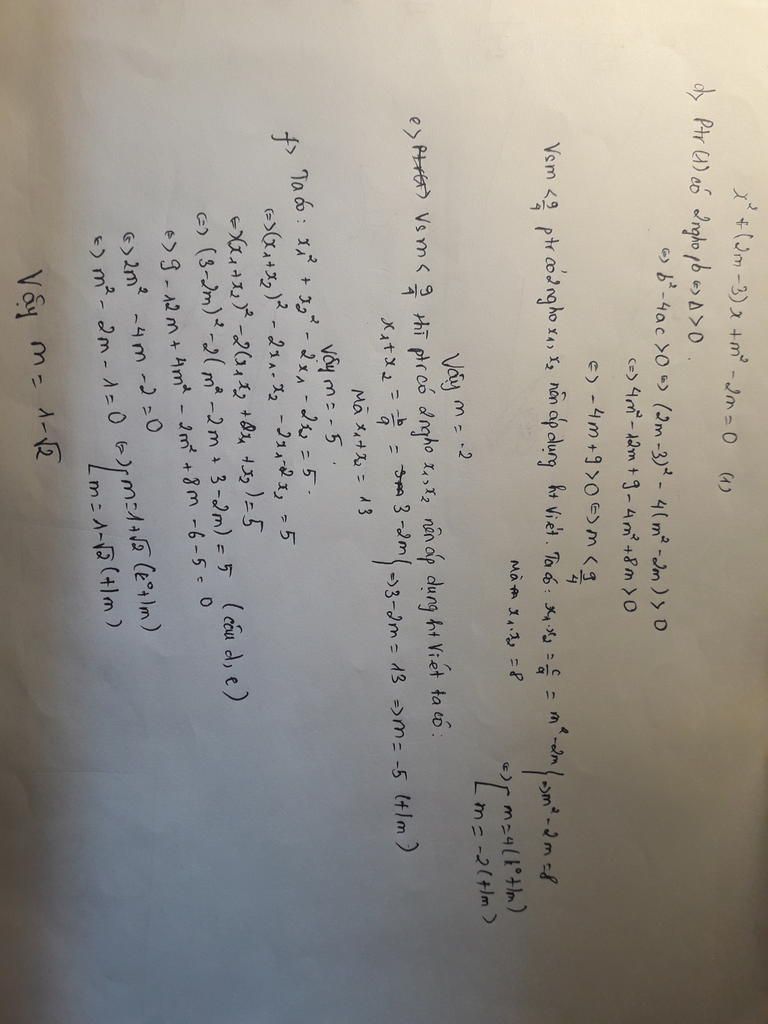 x² + (2m-3)x + m² - 2m = 0 (1)
d> Ptr (1) có 2 ngho pb ⇔ Δ > 0.
⇔ b² - 4ac > 0 ⇔ (2m-3)² - 4(m² - 2m) > 0
⇔ 4m² - 12m + 9 - 4m² + 8m > 0
⇔ -4m + 9 > 0 ⇔ m < 9/4
Vs m < 9/4 ptr có 2 ngho x₁, x₂ nên áp dụng ht Viét. Ta có: x₁.x₂ = c/a = m² - 2m } ⇒ m² - 2m = 8
Mà x₁.x₂ = 8
⇔ [ m = 4 (k° t/m)
m = -2 (t/m)
Vậy m = -2
e> Vs m < 9/4 thì ptr có 2 ngho x₁, x₂ nên áp dụng ht Viét ta có:
x₁ + x₂ = -b/a = 3 - 2m } ⇒ 3 - 2m = 13 ⇒ m = -5 (t/m)
Mà x₁ + x₂ = 13
Vậy m = -5.
f> Ta có: x₁² + x₂² - 2x₁ - 2x₂ = 5.
⇔ (x₁+x₂)² - 2x₁.x₂ - 2x₁ - 2x₂ = 5
⇔ (x₁+x₂)² - 2(x₁x₂ + x₁ + x₂) = 5
⇔ (3-2m)² - 2(m² - 2m + 3 - 2m) = 5 (câu d, e)
⇔ 9 - 12m + 4m² - 2m² + 8m - 6 - 5 = 0
⇔ 2m² - 4m - 2 = 0
⇔ m² - 2m - 1 = 0 ⇔ [ m = 1+√2 (k° t/m)
m = 1-√2 (t/m)
Vậy m = 1-√2